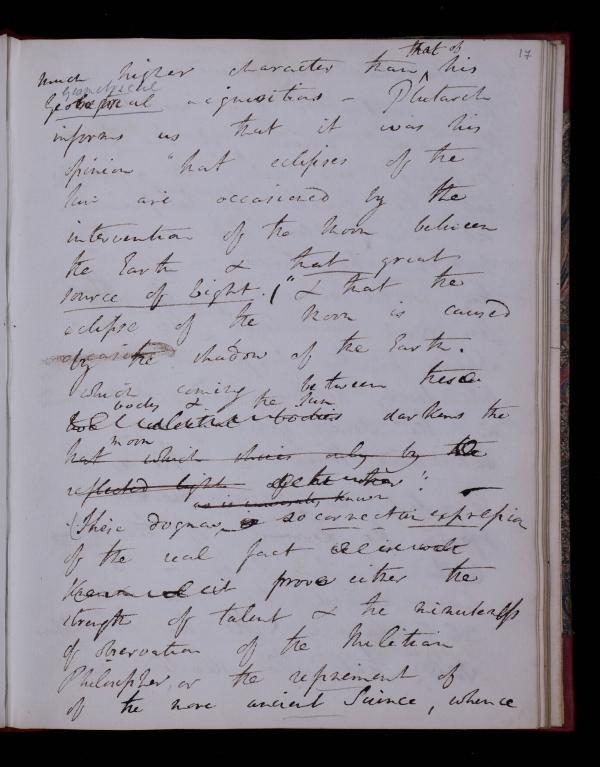 17
that of
much higher character than ^ his
geometrical
Geographical acquisitions – Plutarch
informs us that it was his
opinion "that eclipses of the
Sun are occasioned by the
intervention of the Moon between
the Earth & that great
source of Light. (" & that the
eclipse of the Moon is caused
by the shadow of the Earth.
which coming between these
bodies & the Sun
two celestial bodies darkens the
moon
last which shines only by the
reflected light of the other!"
as is universally known
(These dogmas, so correct an expression
of the real fact
it prove either the
strength of talent & the minuteness
of observation of the Milesian
Philosopher, or the refinement of
of the more ancient Science, whence